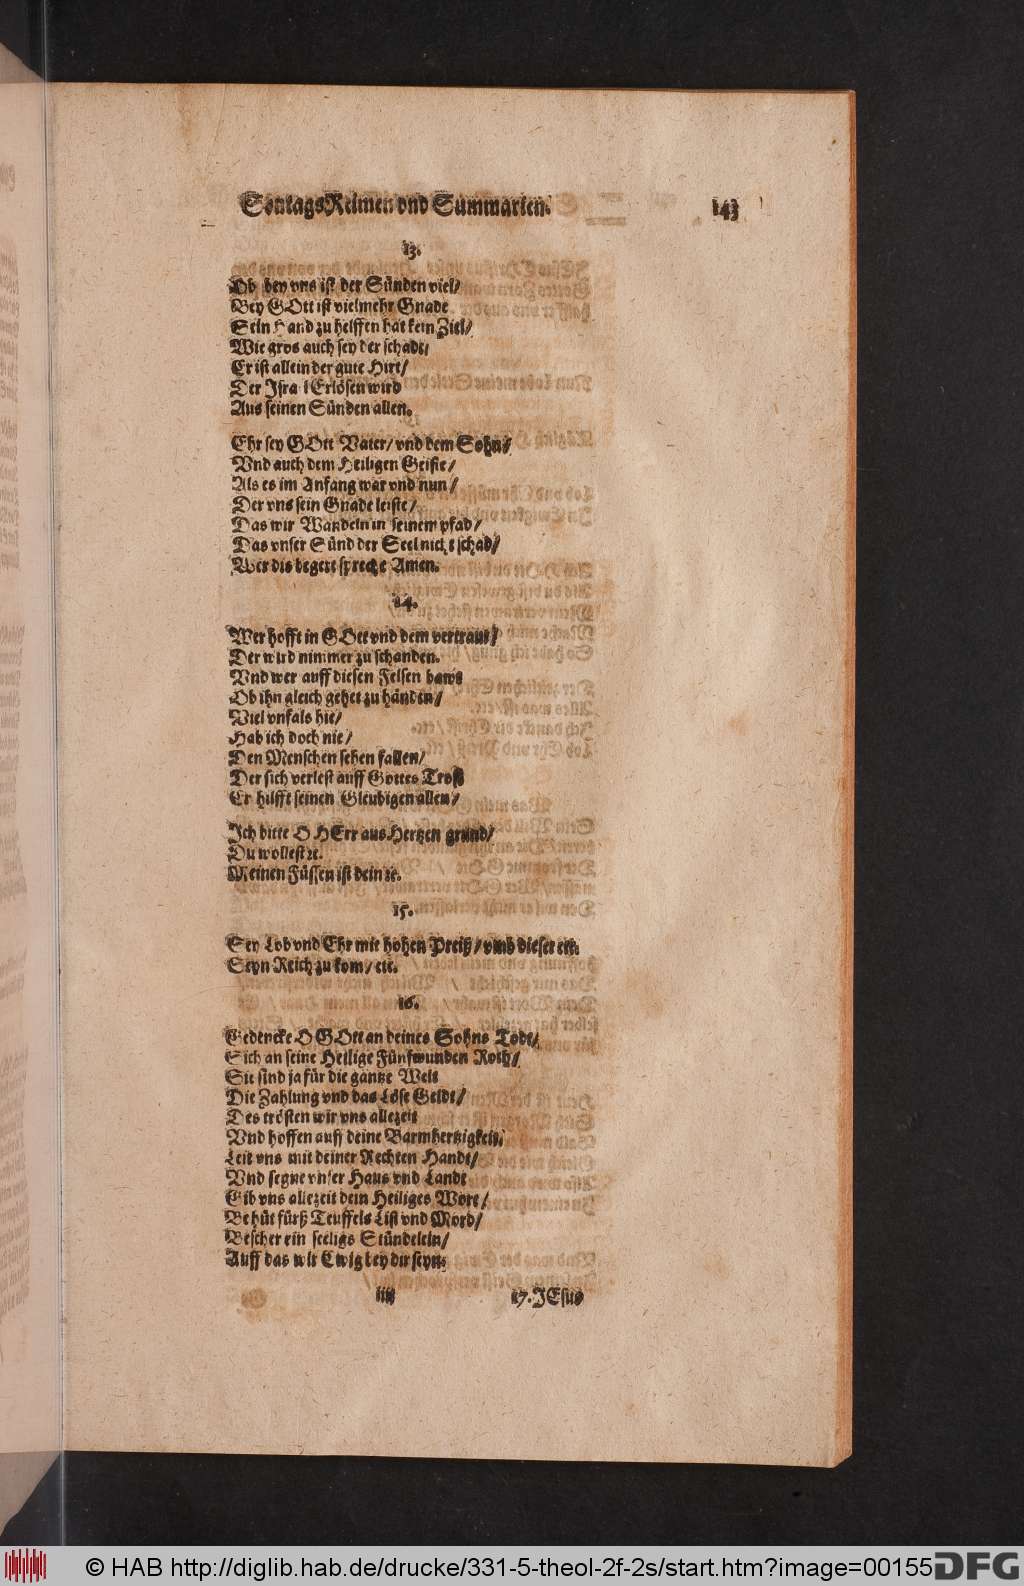 SontagsReimen vnd Summarien. 143
13.
Ob bey vns ist der Sünden viel/
Bey GOtt ist vielmehr Gnade
Sein Hand zu helffen hat kein Ziel/
Wie gros auch sey der schadt/
Er ist allein der gute Hirt/
Der Israel Erlösen wird
Aus seinen Sünden allen.
Ehr sey GOtt Vater/ vnd dem Sohn/
Vnd auch dem Heiligen Geiste/
Als es im Anfang war vnd nun/
Der vns sein Gnade leiste/
Das wir Wandeln in seinem pfad/
Das vnser Sünd der Seel nicht schad/
Wer dis begert spreche Amen.
14.
Wer hofft in GOtt vnd dem vertraut/
Der wird nimmer zu schanden.
Vnd wer auff diesen Felsen bawt
Ob ihn gleich gehet zu händen/
Viel vnfals hie/
Hab ich doch nie/
Den Menschen sehen fallen/
Der sich verlest auff Gottes Trost
Er hilfft seinen Gleubigen allen/
Ich bitte O HErr aus Hertzen grund/
Du wollest ꝛc.
Meinen Füssen ist dein ꝛc.
15.
Sey Lob vnd Ehr mit hohen Preiß/ vmb dieser etc.
Seyn Reich zu kom/ etc.
16.
Gedencke O GOtt an deines Sohns Todt/
Sich an seine Heilige Fünfwunden Roth/
Sie sind ja für die gantze Welt
Die Zahlung vnd das Löse Geldt/
Des trösten wir vns allezeit
Vnd hoffen auff deine Barmhertzigkeit.
Leit vns mit deiner Rechten Handt/
Vnd segne vnser Haus vnd Landt
Gib vns allezeit dein Heiliges Wort/
Behüt fürß Teuffels List vnd Mord/
Bescher ein seeligs Stündelein/
Auff das wir Ewig bey dir seyn.
17. JEsus
© HAB http://diglib.hab.de/drucke/331-5-theol-2f-2s/start.htm?image=00155
DFG